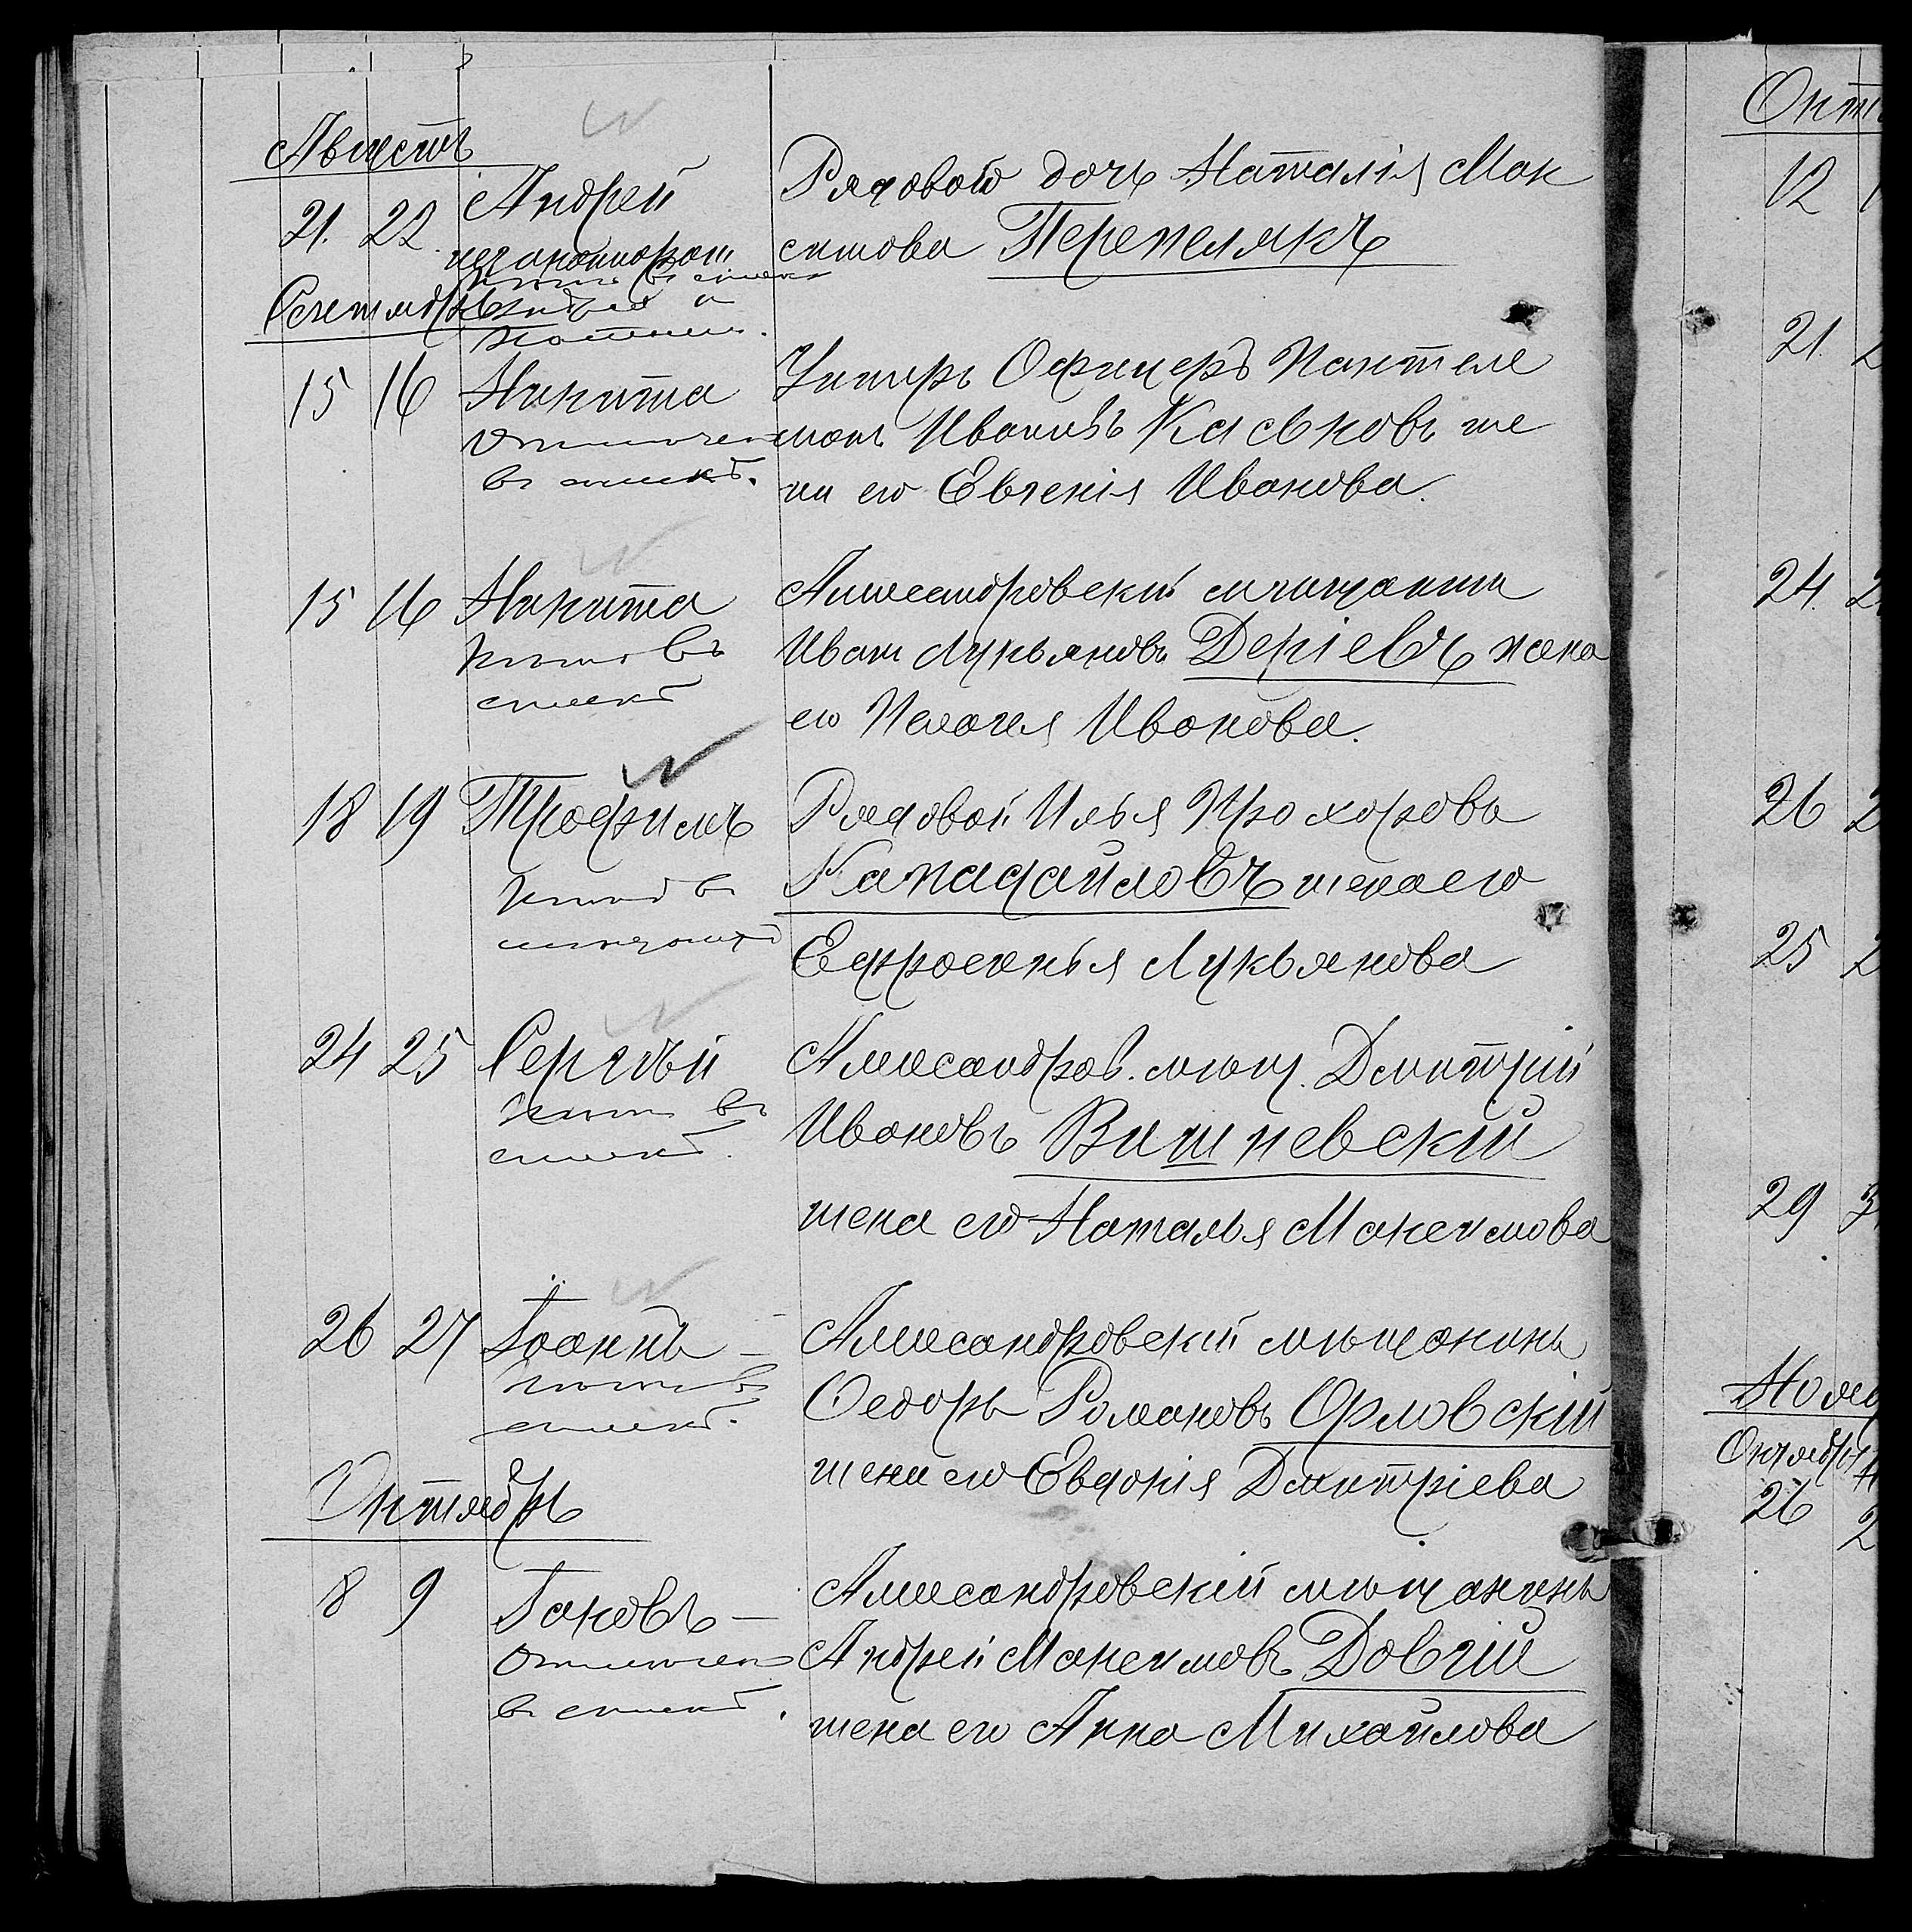 Августъ
21. 22. Андрей
незаконнорож.
Рядовой дочь Наталія Мак
симова Перепелякъ
Сентябрь
15 16 Никита
отмечен
в списке.
Унтеръ Офицеръ Пантеле
монъ Ивановъ Каськовъ же
на его Евгенія Иванова.
15 16 Никита
в
списке
Александровскій мещанинъ
Иванъ Лукьяновъ Деріевъ жена
его Пелагея Иванова.
18 19 Трофимъ
в
Рядовой Илья Прохоровъ
жена его
Ефросинья Лукьянова
24 25 Сергѣй
въ
списке.
Александров. мѣщ. Дмитрій
Ивановъ Вишневскій
жена его Наталья Максимова
26 27 Іоаннъ —
в
списке.
Александровскій мѣщанинъ
Федоръ Романовъ Орловскій
жена его Евдокія Дмитріева
Октябрь
8 9 Іаковъ —
отмечен
в списке.
Александровскій мѣщанинъ
Андрей Максимовъ Довгій
жена его Анна Михайлова
Окт
12
21.
24.
26
25
29
Нояб
Октябр
26